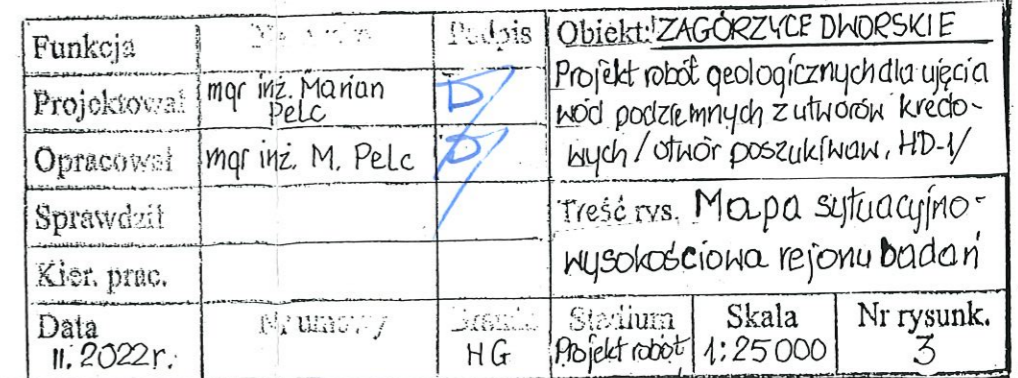 Funkcja Podpis Obiekt: ZAGÓRZYCE DWORSKIE
Projektował mgr inż. Marian Pelc
Projekt robót geologicznych dla ujęcia
wód podziemnych z utworów kredo-
wych / otwór poszukiwaw. HD-1/
Opracował mgr inż. M. Pelc
Sprawdził
Treść rys. Mapa sytuacyjno-
wysokościowa rejonu badań
Kier. prac.
Data Nr umowy Branża Stadium Skala Nr rysunk.
II. 2022r. HG Projekt robót 1:25000 3